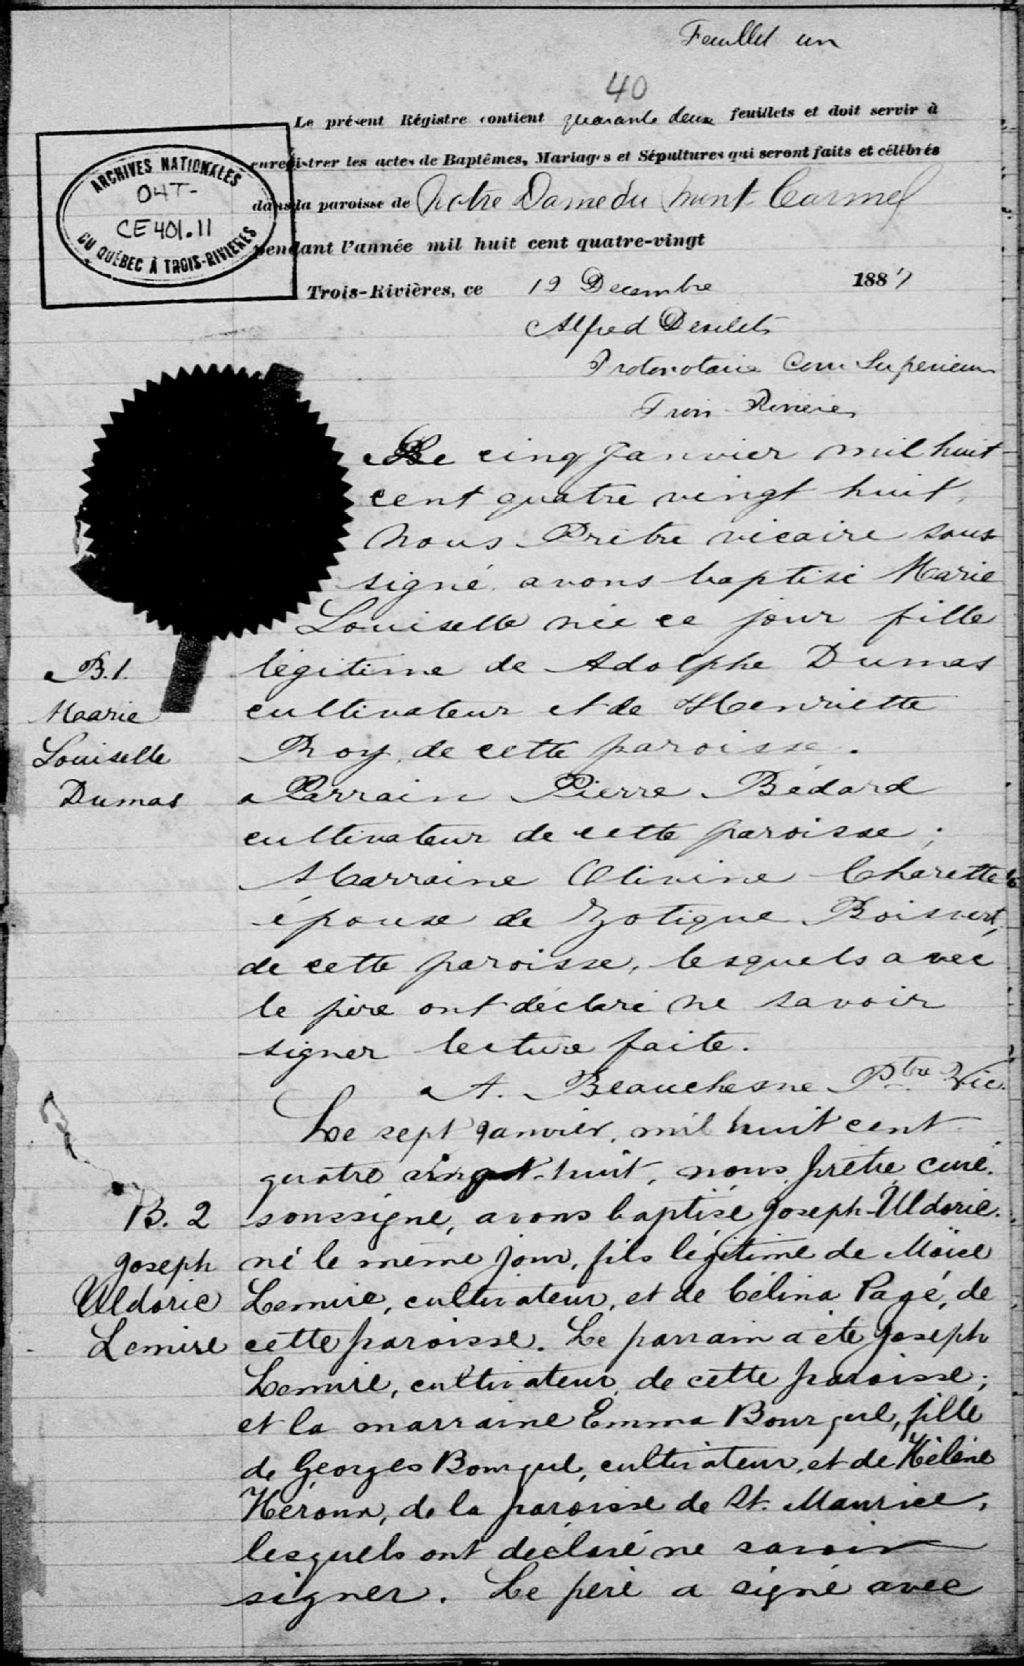 Feuillet un
40
Le présent Régistre contient quarante deux feuillets et doit servir à
enregistrer les actes de Baptêmes, Mariages et Sépultures qui seront faits et célébrés
dans la paroisse de Notre Dame du Mont Carmel
pendant l'année mil huit cent quatre-vingt
Trois-Rivières, ce 19 Decembre 1887
ARCHIVES NATIONALES
04T-
CE 401.11
DU QUÉBEC À TROIS-RIVIÈRES
Alfred Desilets
Protonotaire Cour Superieure
Trois Rivieres
Le cinq Janvier mil huit
cent quatre vingt huit,
Nous Prêtre vicaire sous
signé, avons baptisé Marie
Louiselle née ce jour fille
légitime de Adolphe Dumas
cultivateur et de Henriette
Roy, de cette paroisse.
Parrain Pierre Bédard
cultivateur de cette paroisse;
Marraine Olivine Charette
épouse de Zotique Boisvert,
de cette paroisse, lesquels avec
le père ont déclaré ne savoir
signer lecture faite.
A. Beauchesne Ptre Vic.
B. 1.
Maarie
Louiselle
Dumas
Le sept Janvier, mil huit cent
quatre vingt-huit, nous, prêtre curé
soussigné, avons baptisé Joseph-Uldoric
né le même jour, fils légitime de Moïse
Lemire, cultivateur, et de Célina Pagé, de
cette paroisse. Le parrain a été Joseph
Lemire, cultivateur, de cette paroisse;
et la marraine Emma Bourgul, fille
de Georges Bourgul, cultivateur, et de Hélène
Héroux, de la paroisse de St. Maurice,
lesquels ont déclaré ne savoir
signer. Le père a signé avec
B. 2
Joseph
Uldoric
Lemire